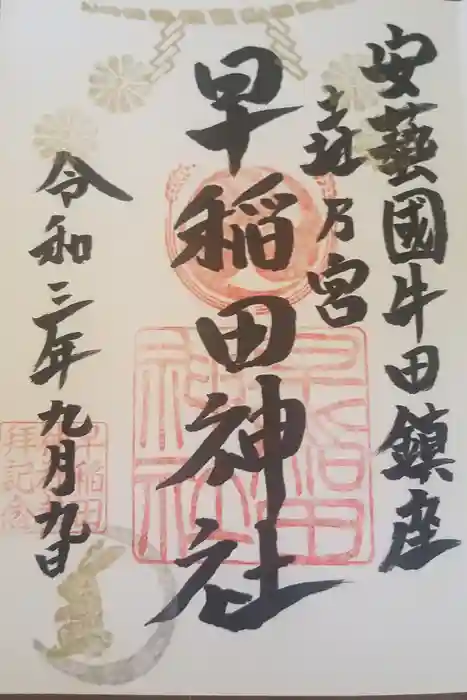 安藝國牛田鎮座
乃宮
早稲田神社
令和三年九月九日
早稲田
神社
早稲田
神社参
拝記念